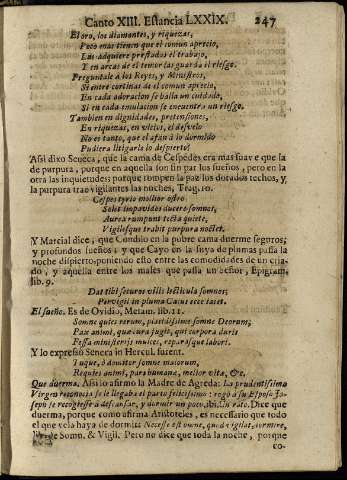 Canto XIII. Estancia LXXIX. 247
El oro, los diamantes, y riquezas,
Poco mas tienen que el comun aprecio,
Las adquiere prestadas el trabajo,
Y en arcas de el temor las guarda el riesgo.
Preguntale à los Reyes, y Ministros,
Si entre cortinas de el comun aprecio,
En cada adoracion se halla un cuidado,
Si en cada emulacion se encuentra un riesgo.
Tambien en dignidades, pretensiones,
En riquezas, en vicios, el desvelo
No es tanto, que el afan à lo dormido
Pudiera litigarlo lo despierto.
Assi dixo Seneca, que la cama de Cespedes era mas suave que la
de purpura, porque en aquella son sin par los sueños, pero en la
otra las inquietudes porque rompen la paz los dorados techos, y
la purpura trae vigilantes las noches, Trag. 10.
Cespes tyrio mollior ostro
Solet impavidos ducere somnos,
Aurea rumpunt tecta quiete,
Vigilesque trabit purpura noctes.
Y Marcial dice, que Condilo en la pobre cama duerme seguros;
y profundos sueños; y que Cayo en la suya de plumas passa la
noche dispierto, poniendo esto entre las comodidades de un cria-
do, y aquella entre los males que passa un señor, Epigram.
lib. 9.
Dat tibi securos vilis lecticula somnos;
Pervigil in pluma Caius ecce iacet.
El sueño. Es de Ovidio, Metam. lib. 11.
Somne quies rerum, placidissime somne Deorum;
Pax animi, quæ cura fugit, qui corpora duris
Fessa ministerijs mulces, reparasque labori.
Y lo expressò Seneca in Hercul. furent.
Tuque, ò domitor somne malorum,
Requies animi, pars humanæ, melior vitæ, &c.
Que duerma. Assi lo afirmo la Madre de Agreda: La prudentissima
Virgen reconociò se le llegaba el parto felicissimo: rogò a su Esposo Jo-
seph se recogiesse à descansar, y dormir un poco, ibi. Un rato. Dice que
duerma, porque como afirma Aristoteles, es necessario que todo
el que vela haya de dormir: Necesse est omne, quod vigilat, dormire,
de Somn. & Vigil. Pero no dice que toda la noche, porque
co-